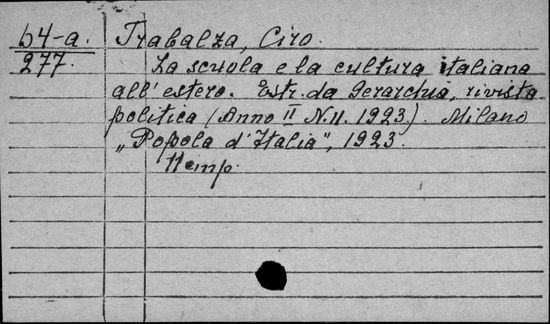 b4-a. Trabalza, Ciro.
277. La scuola e la cultura italiana
all' estero. Estr. da Gerarchia, rivista
politica (Anno II N.11. 1923). Milano
„Popola d'Italia", 1923.
11 cmp.